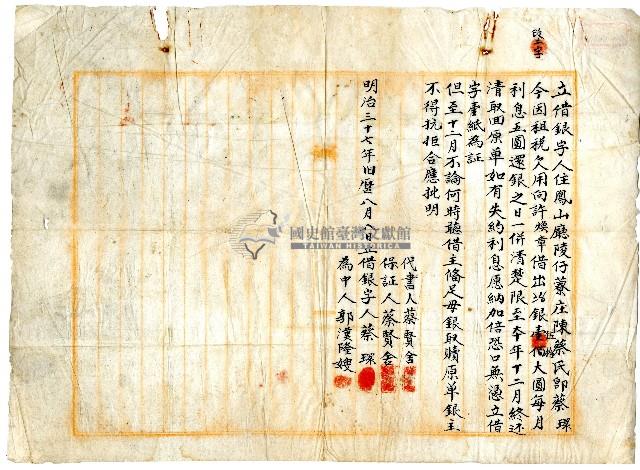 改二字
立借銀字人住鳳山廳陵仔藔庄陳蔡氏即蔡琛
今因租稅欠用向許煥章借出龍銀壹佰大圓每月
利息五圓還銀之日一併清楚限至本年十二月終還
清取回原单如有失約利息愿納加倍恐口無憑立借
字壹紙為証
但至十二月不論何時聽借主偹足母銀取贖原单銀主
不得抗拒合應批明
代書人蔡賢舍
保証人蔡賢舍
明治三十七年旧曆八月八日立借銀字人蔡琛
為中人郭漢隆嫂
國史館臺灣文獻館
TAIWAN HISTORICA